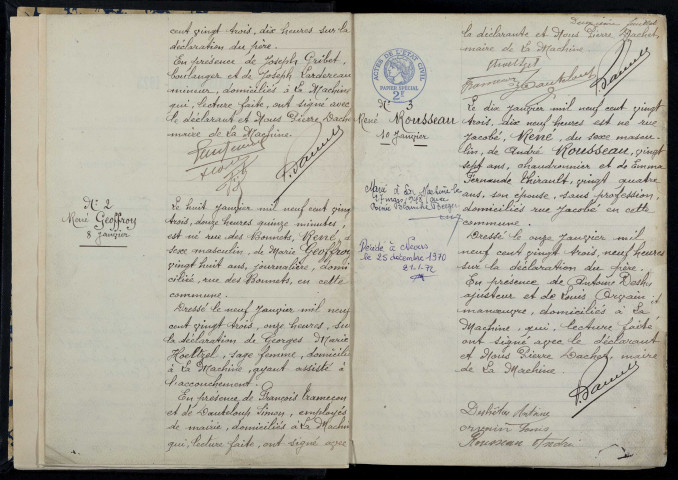 cent vingt trois, dix heures sur la
déclaration du père.
En présence de Joseph Gribet,
boulanger et de Joseph Lardereau
mineur, domiciliés à La Machine
qui, lecture faite, ont signé avec
le déclarant et Nous Pierre Dachet
maire de La Machine.
N° 2
René Geoffroy
8 Janvier
Le huit Janvier mil neuf cent vingt
trois, douze heures quinze minutes
est né rue des Bonnets, René, du
sexe masculin, de Marie Geoffroy
vingt huit ans, journalière, domi
ciliée, rue des Bonnets, en cette
commune.
Dressé le neuf Janvier mil neuf
cent vingt trois, onze heures, sur
la déclaration de Georges Marie
Hoeltzel, sage femme, domiciliée
à La Machine, ayant assisté à
l'accouchement.
En présence de François Cramecon
et de Dauteloup Simon, employés
de mairie, domiciliés à La Machine
qui, lecture faite, ont signé avec
Deuxième feuillet
la déclarante et Nous Pierre Dachet,
maire de La Machine.
ACTES DE L'ETAT CIVIL
PAPIER SPECIAL
2F
N° 3
René Rousseau
10 Janvier
Marié à La Machine le
avec
Décédé à Nevers
le 25 décembre 1970
21.1.72
Le dix Janvier mil neuf cent vingt
trois, dix neuf heures est né rue
Jacobé, René, du sexe mascu
lin, de André Rousseau, vingt
sept ans, chaudronnier et de Emma
Fernande Thirault, vingt quatre
ans, son épouse, sans profession,
domiciliés rue Jacobé en cette
commune.
Dressé le onze Janvier mil
neuf cent vingt trois, neuf heures
sur la déclaration du père.
En présence de Antoine
ajusteur et de Louis
manœuvre, domiciliés à La
Machine, qui, lecture faite
ont signé avec le déclarant
et Nous Pierre Dachet, maire
de La Machine.
Rousseau André